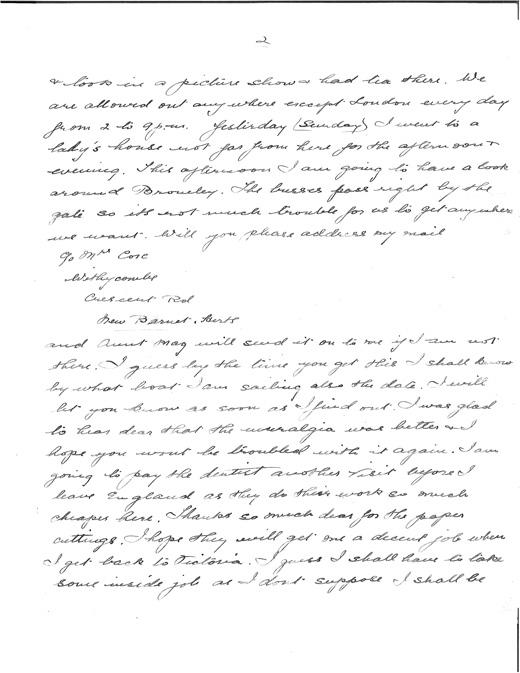 2
& look in a picture show & had tea there. We
are allowed out any where except London every day
from 2 to 9 p.m. Yesterday (Sunday) I went to a
lady's house not far from here for the afternoon &
evening. This afternoon I am going to have a look
around Bromley. The busses pass right by the
gate so its not much trouble for us to get anywhere
we want. Will you please address my mail
c/o Mrs Cox
Withycombe
Crescent Rd
New Barnet. Herts
and Aunt Mag will send it on to me if I am not
there. I guess by the time you get this I shall know
by what boat I am sailing also the date. I will
let you know as soon as I find out. I was glad
to hear dear that the neuralgia was better & I
hope you wont be troubled with it again. I am
going to pay the dentist another visit before I
leave England as they do their work so much
cheaper here. Thanks so much dear for the paper
cuttings. I hope they will get me a decent job when
I get back to Victoria. I guess I shall have to take
some inside job as I dont suppose I shall be